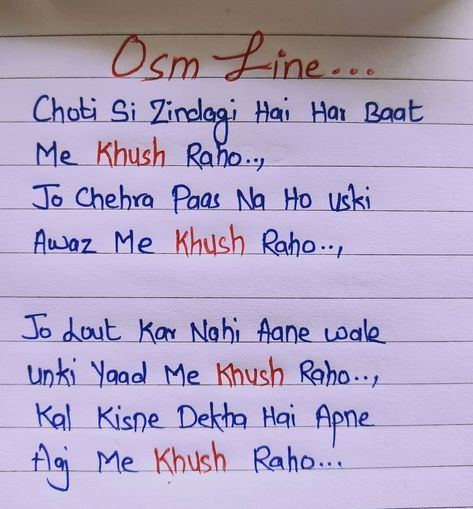 Osm Line...
Choti Si Zindagi Hai Har Baat
Me Khush Raho..,
Jo Chehra Paas Na Ho uski
Awaz Me Khush Raho..,
Jo Lout Kar Nahi Aane wale
unki Yaad Me Khush Raho..,
Kal Kisne Dekha Hai Apne
Aaj Me Khush Raho...